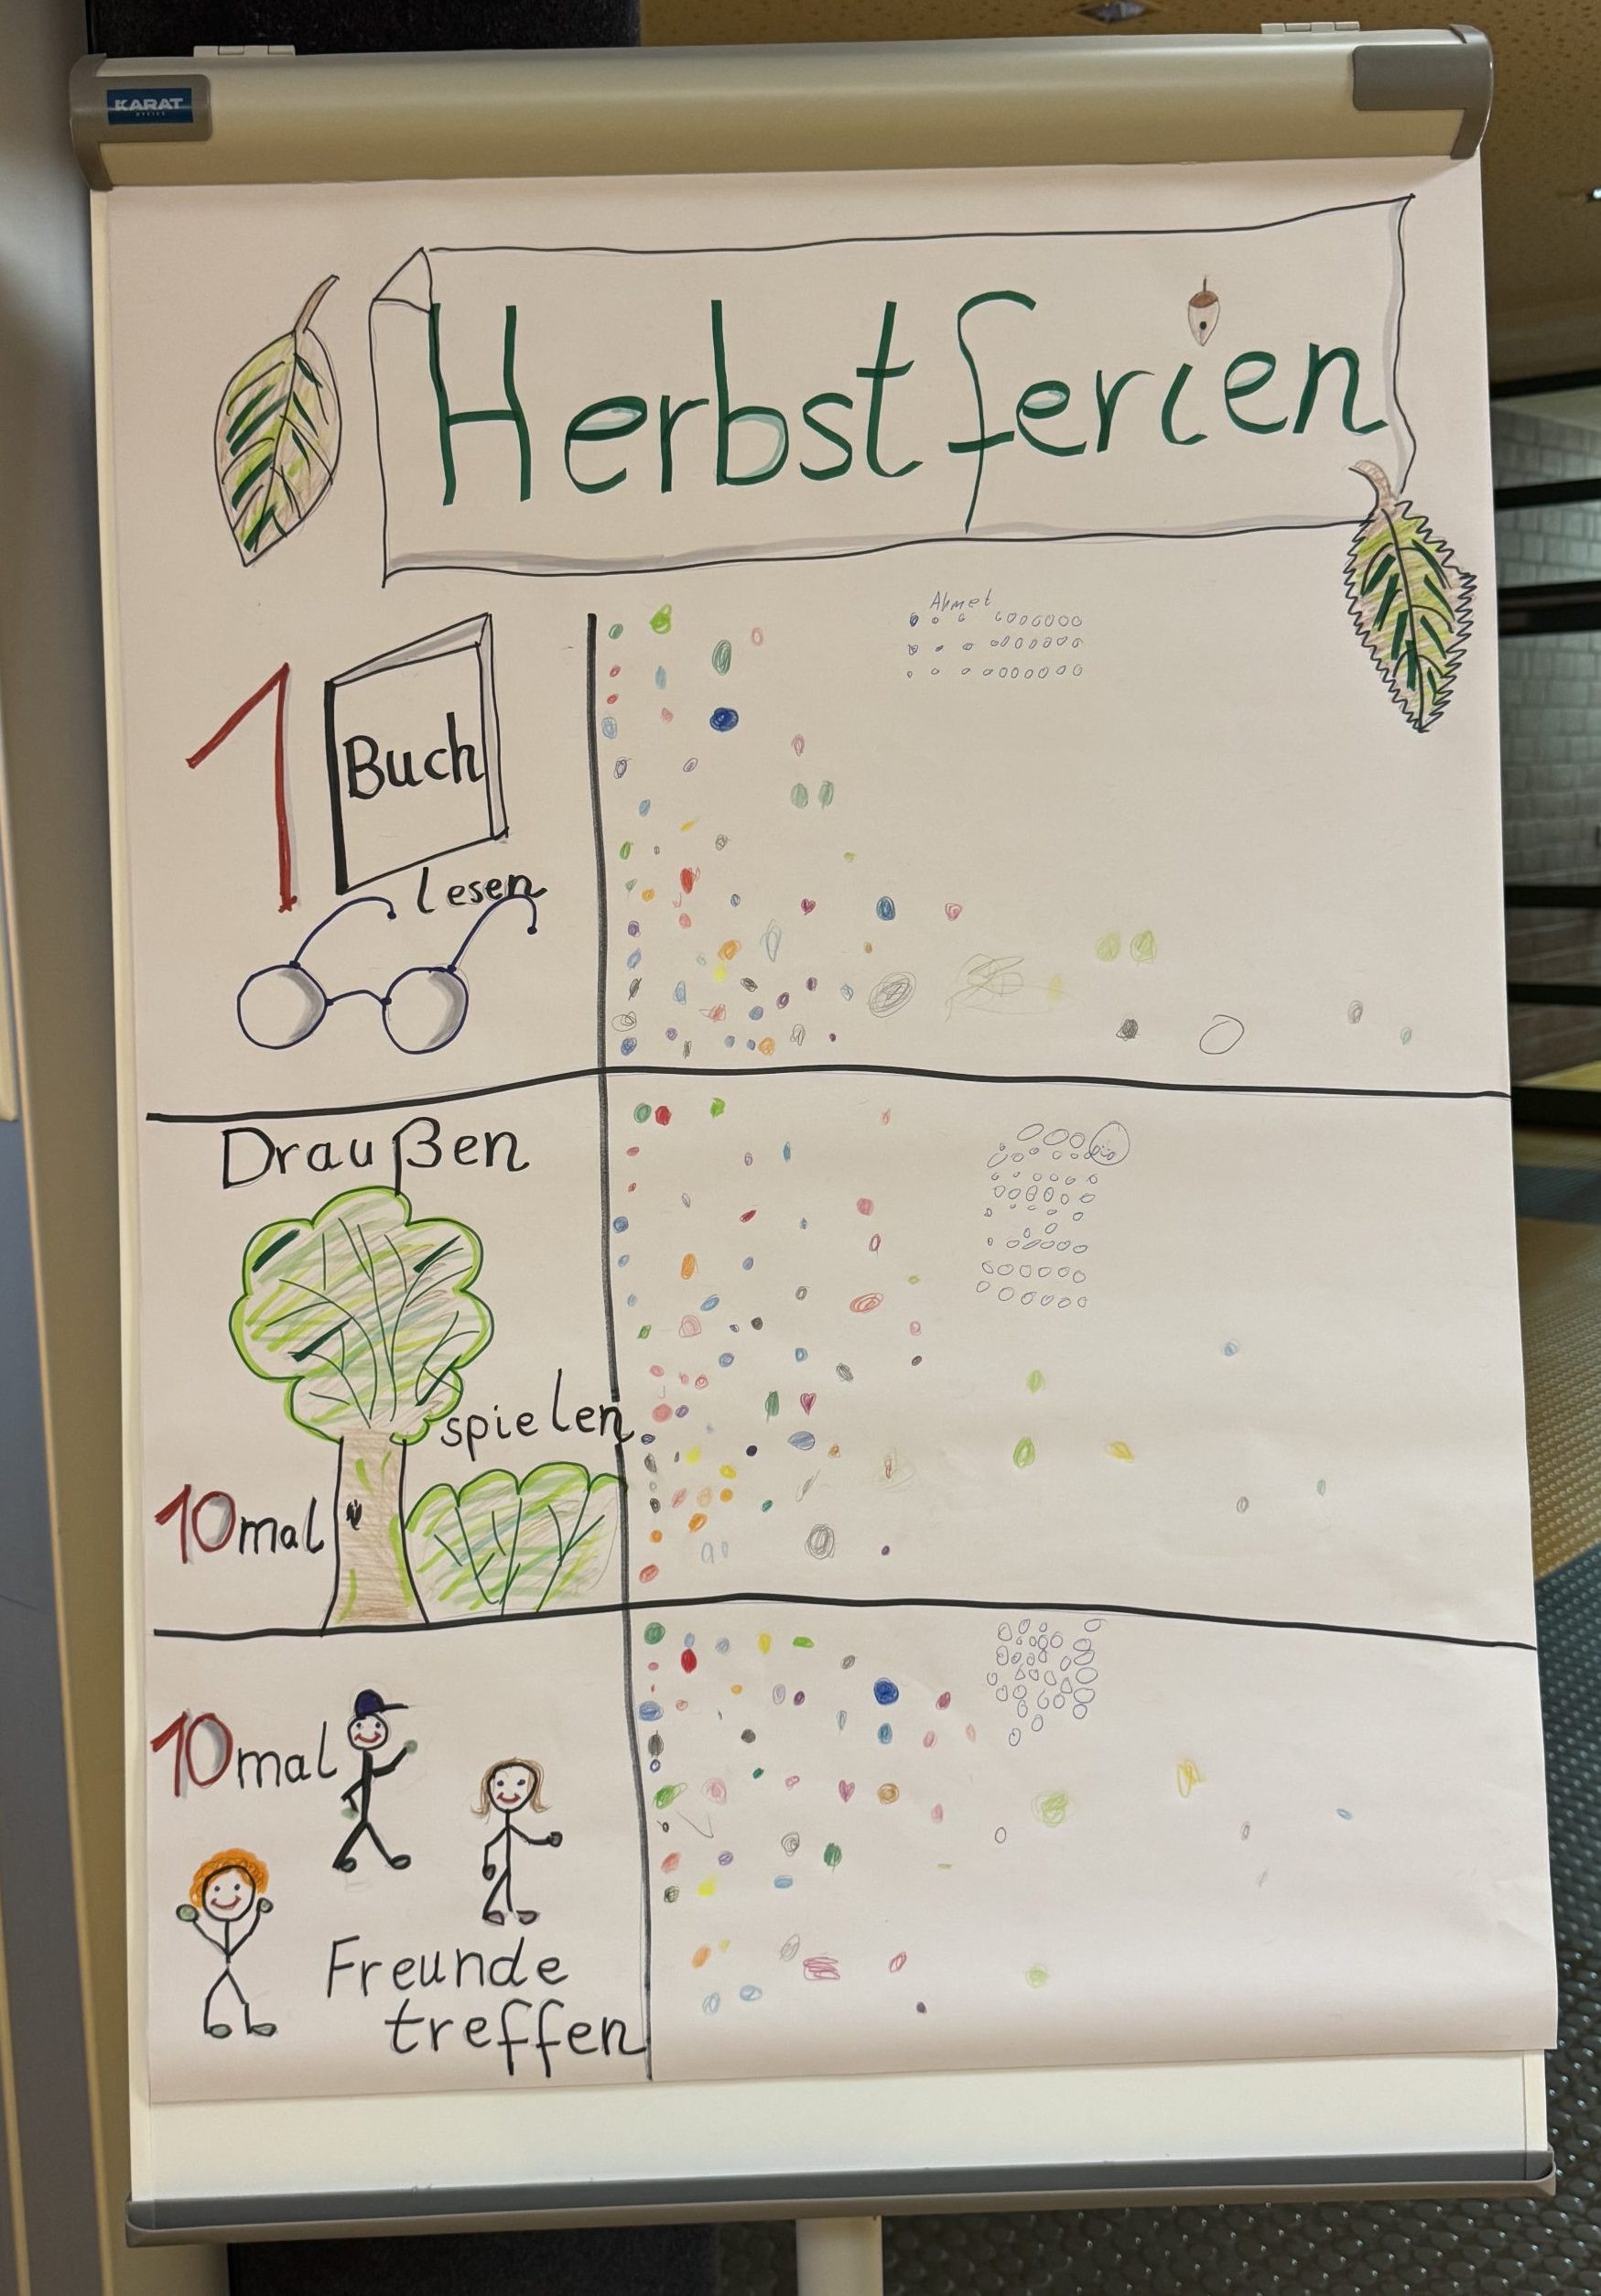 KARAT
OFFICE
Herbstferien
Ahmet
1 Buch
lesen
Draußen
spielen
10mal
10mal
Freunde
treffen